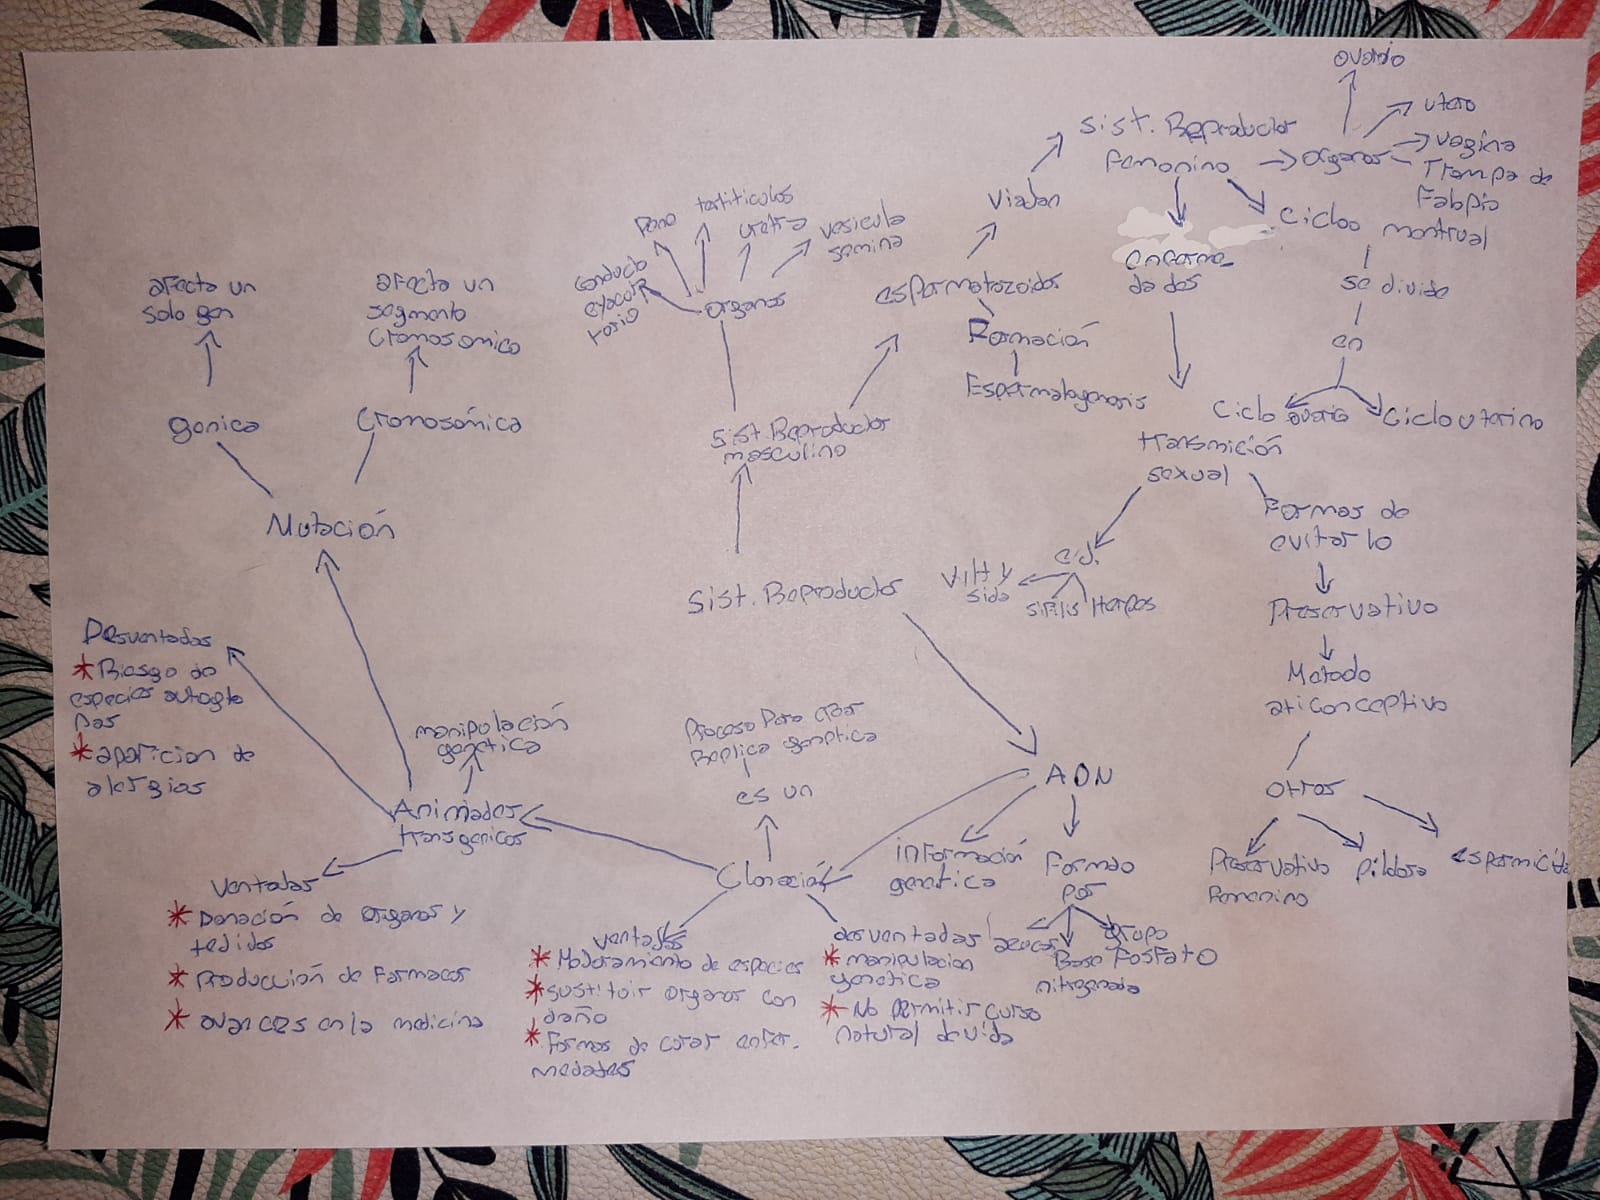 ovario
utero
vagina
Trompa de
Falopio
Sist. Reproductor
Femenino
organos
Viajan
Ciclos
montrual
se divide
en
Ciclo ovario
Ciclo uterino
enferme_
dades
transmición
sexual
Formas de
evitarlo
Preservativo
Metodo
aticonceptivo
otros
Preservativo
Femenino
Pildora
espermicida
ej.
VIH y
sida
sifilis
Herpes
Pene
testiticulos
uretra
vesicula
semina
conducto
organos
espermatozoides
Formación
Espermatogenesis
Sist. Reproductor
masculino
Sist. Reproductor
afecta un
solo gen
afecta un
segmento
Cromosomico
genica
Cromosómica
Mutación
Desventajas
* Riesgo de
especies autogto
nas
* aparicion de
alergias
manipulación
genetica
Animales
transgenicos
ventajas
* Donación de organos y
tejidos
* Producción de farmacos
* avances en la medicina
Proceso Para crear
Replica genetica
es un
Clonación
ventajas
* Mejoramiento de especies
* sustituir organos con
daño
* Formas de curar enfer.
medades
desventajas
* manipulacion
genetica
* No permitir curso
natural de vida
ADN
información
genetica
Formado
por
azucar
Base
nitrgenada
Grupo
Fosfato